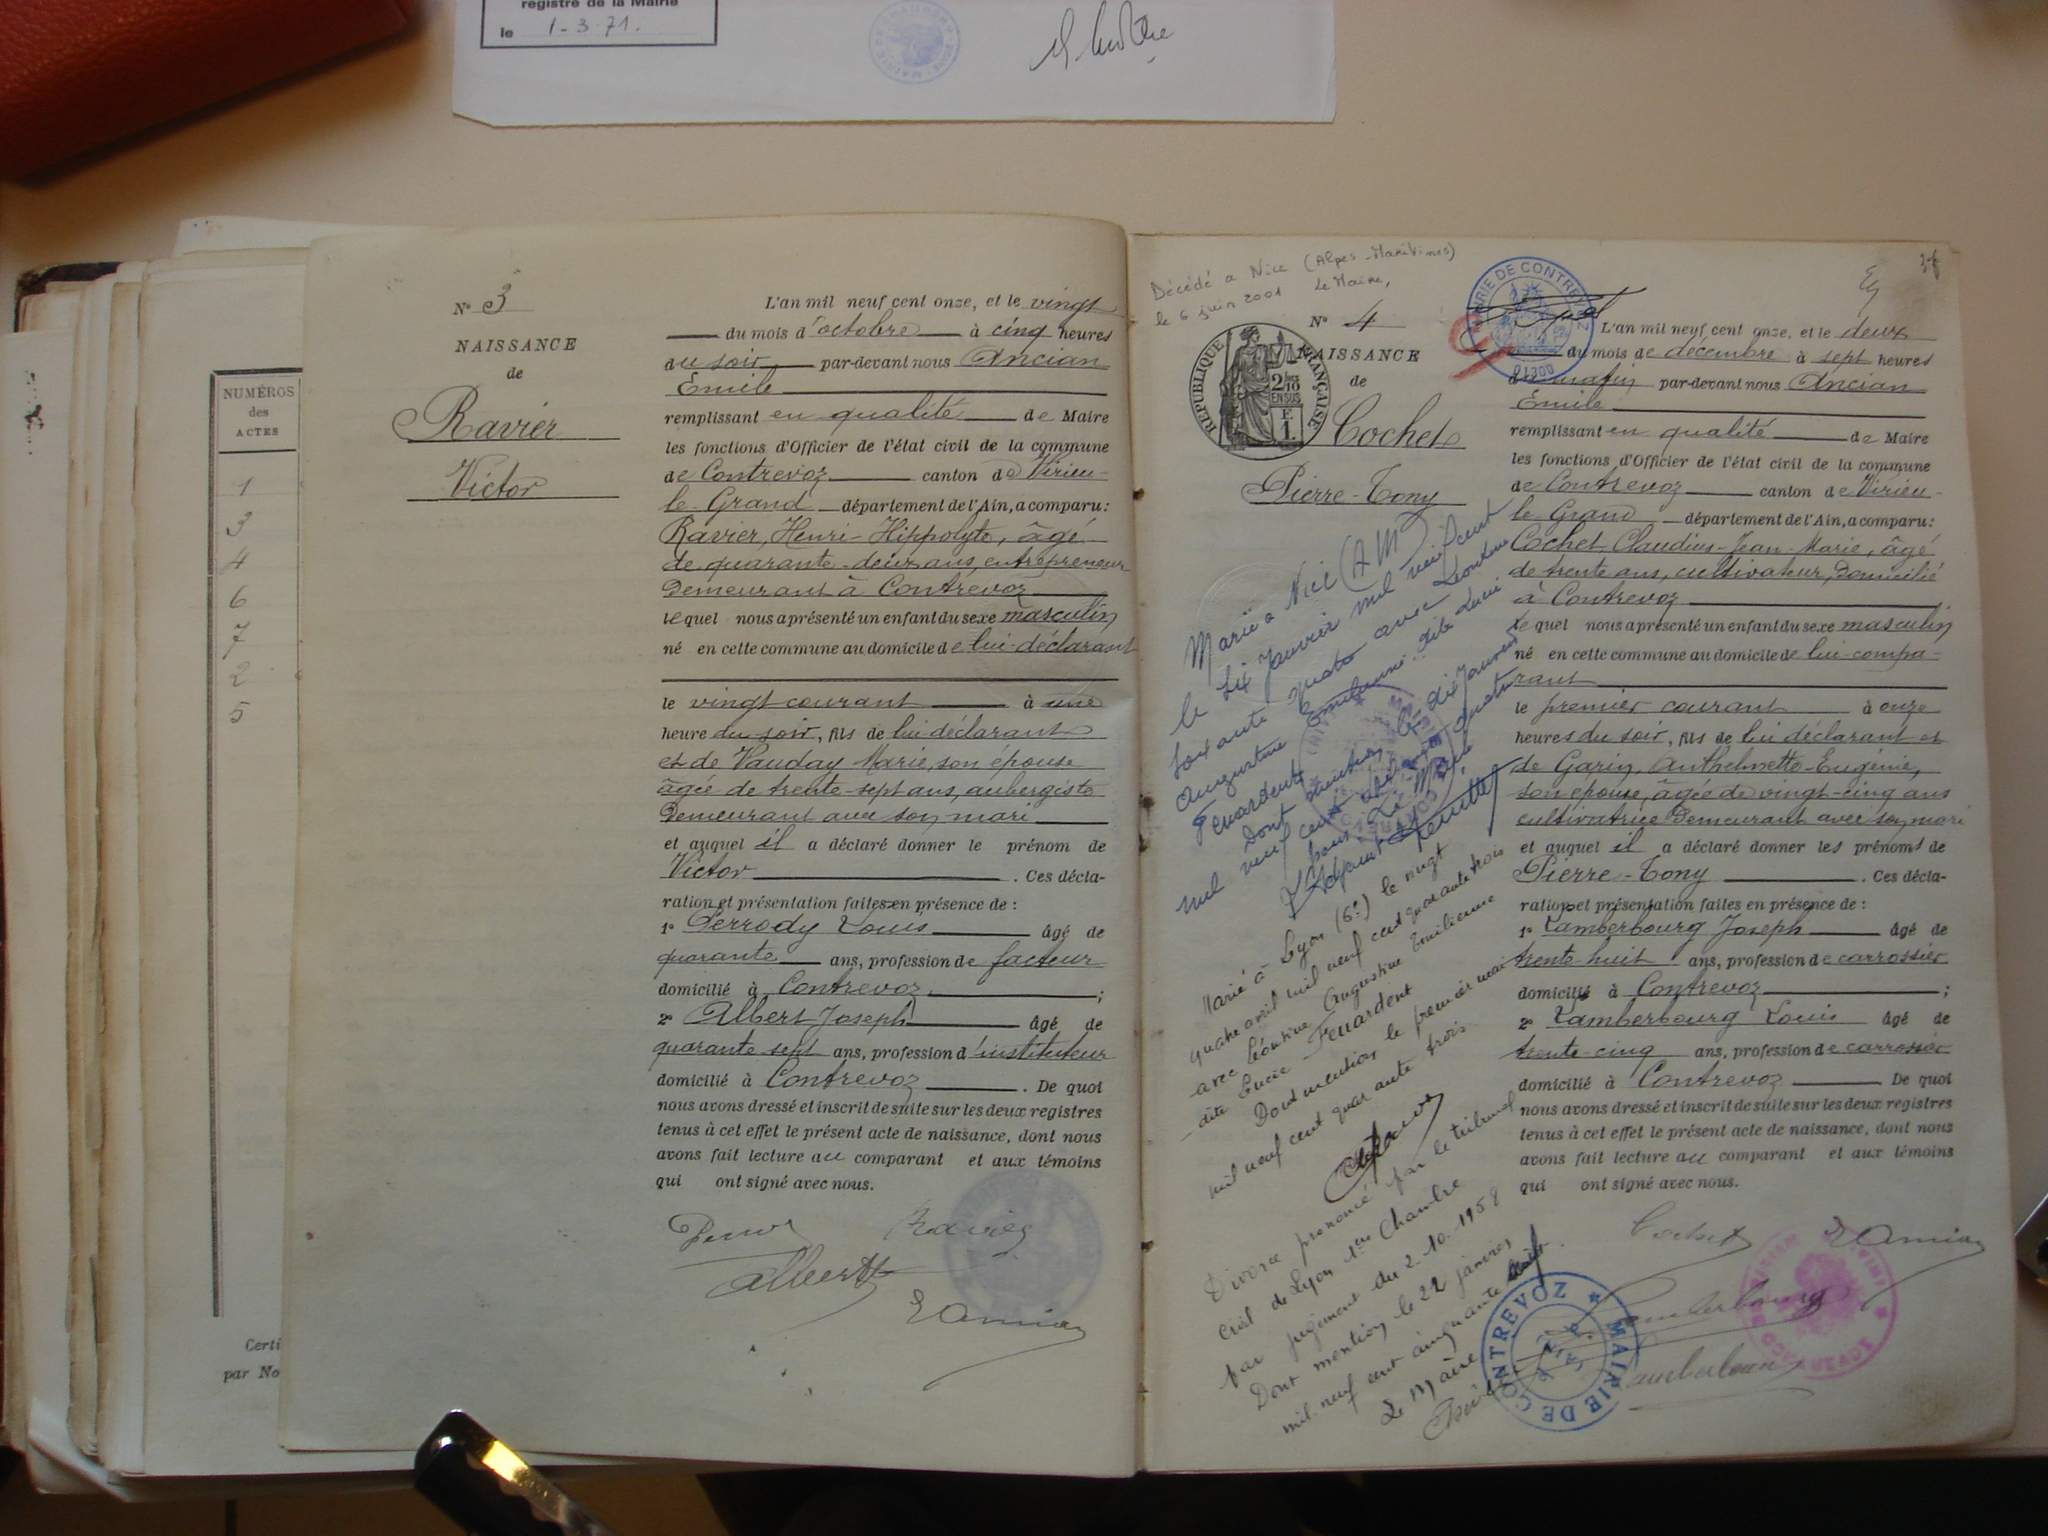 registre de la Mairie
le 1-3-71.
NUMÉROS
des
ACTES
1
3
4
6
7
2
5
Certi
par No
N° 3
NAISSANCE
de
Ravier
Victor
L'an mil neuf cent onze, et le vingt
du mois d'octobre à cinq heures
du soir par-devant nous Ancian
Emile
remplissant en qualité de Maire
les fonctions d'Officier de l'état civil de la commune
de Contrevoz canton de Virieu-
le-Grand département de l'Ain, a comparu:
Ravier, Henri-Hippolyte, âgé
de quarante-deux ans, entrepreneur
demeurant à Contrevoz
lequel nous a présenté un enfant du sexe masculin
né en cette commune au domicile de lui-déclarant
le vingt courant à une
heure du soir, fils de lui déclarant
et de Vauday Marie, son épouse
âgée de trente-sept ans, aubergiste
demeurant avec son mari
et auquel il a déclaré donner le prénom de
Victor. Ces décla-
ration et présentation faites en présence de:
1° Perrody Louis âgé de
quarante ans, profession de facteur
domicilié à Contrevoz;
2° Albert Joseph âgé de
quarante sept ans, profession d'instituteur
domicilié à Contrevoz. De quoi
nous avons dressé et inscrit de suite sur les deux registres
tenus à cet effet le présent acte de naissance, dont nous
avons fait lecture au comparant et aux témoins
qui ont signé avec nous.
Ravier
Albert
E Ancian
Décédé a Nice (Alpes-Maritimes)
le 6 juin 2001 Le Maire,
N° 4
NAISSANCE
de
Cochet
Pierre-Tony
RÉPUBLIQUE FRANÇAISE
2/10 EN SUS
F.
1.
MAIRIE DE CONTREVOZ
01300
Marié à Nice (A M)
le dix Janvier mil neuf cent
soixante quatre avec Léontine
Augustine Emilienne dite Lucie
Fenardent
Dont mention, le dix Janvier
mil neuf cent soixante quatre
Pour Le Maire
L'Adjoint
Marié à Lyon (6e) le vingt
quatre avril mil neuf cent quarante trois
avec Léontine Augustine Emilienne
dite Lucie Fenardent
Dont mention le premier mai
mil neuf cent quarante trois
Divorce prononcé par le tribunal
civil de Lyon 1ère Chambre
par jugement du 2.10.1958
Dont mention le 22 janvier
mil neuf cent cinquante neuf.
Le Maire
MAIRIE DE CONTREVOZ
L'an mil neuf cent onze, et le deux
du mois de décembre à sept heures
du matin par-devant nous Ancian
Emile
remplissant en qualité de Maire
les fonctions d'Officier de l'état civil de la commune
de Contrevoz canton de Virieu-
le-Grand département de l'Ain, a comparu:
Cochet Claudius-Jean-Marie, âgé
de trente ans, cultivateur, domicilié
à Contrevoz
lequel nous a présenté un enfant du sexe masculin
né en cette commune au domicile de lui-compa-
rant
le premier courant à onze
heures du soir, fils de lui déclarant et
de Garin, Anthelmette-Eugénie,
son épouse, âgée de vingt-cinq ans
cultivatrice demeurant avec son mari
et auquel il a déclaré donner les prénoms de
Pierre-Tony. Ces décla-
ration et présentation faites en présence de:
1° Lamberbourg Joseph âgé de
trente-huit ans, profession de carrossier
domicilié à Contrevoz;
2° Lamberbourg Louis âgé de
trente-cinq ans, profession de carrossier
domicilié à Contrevoz De quoi
nous avons dressé et inscrit de suite sur les deux registres
tenus à cet effet le présent acte de naissance, dont nous
avons fait lecture au comparant et aux témoins
qui ont signé avec nous.
Cochet E Ancian
Lamberbourg